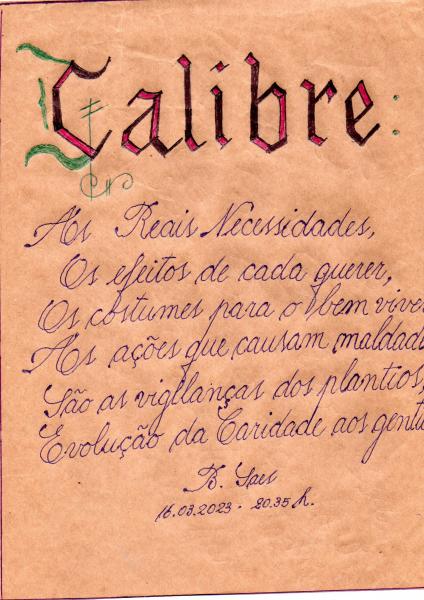 Calibre:
As Reais Necessidades,
Os efeitos de cada querer,
Os costumes para o bem viver
As ações que causam maldad
São as vigilanças dos plantios,
Evolução da Caridade aos gent
B. Saes
16.03.2023 - 20.35 h.